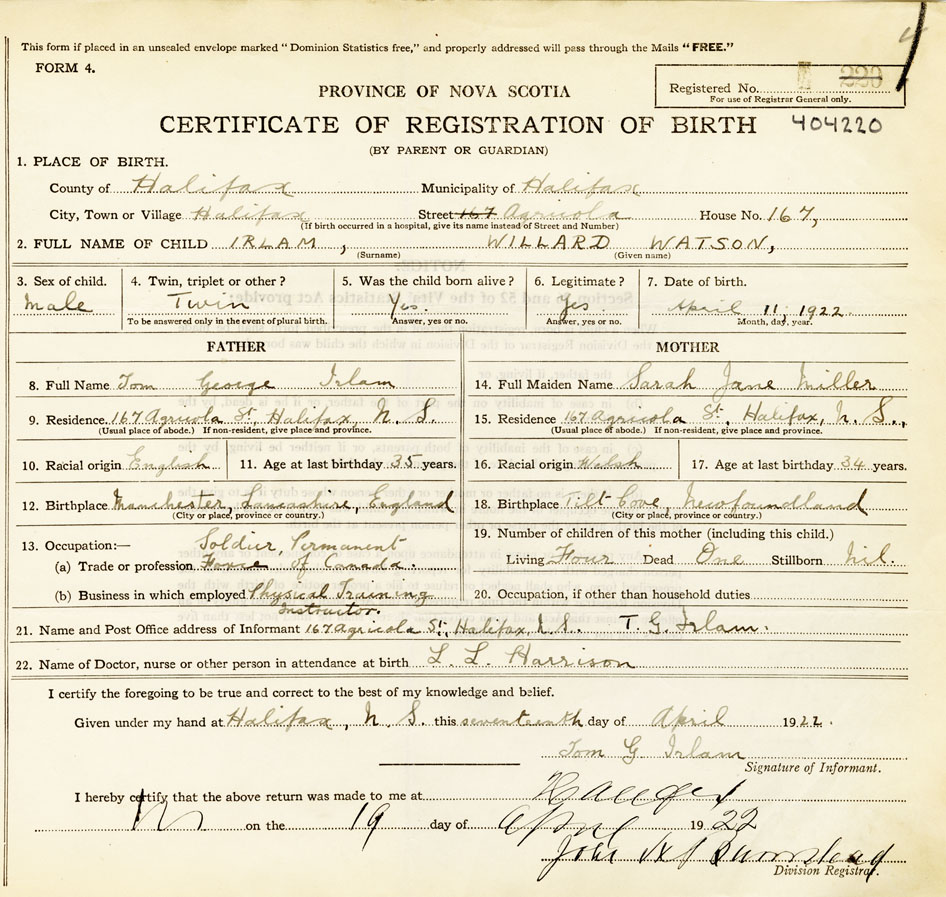 This form if placed in an unsealed envelope marked "Dominion Statistics free," and properly addressed will pass through the Mails "FREE."
FORM 4.
Registered No. 220
For use of Registrar General only.
PROVINCE OF NOVA SCOTIA
CERTIFICATE OF REGISTRATION OF BIRTH 404220
(BY PARENT OR GUARDIAN)
1. PLACE OF BIRTH.
County of Halifax Municipality of Halifax
City, Town or Village Halifax Street 167 Agricola House No. 167,
(If birth occurred in a hospital, give its name instead of Street and Number)
2. FULL NAME OF CHILD IRLAM, WILLARD WATSON,
(Surname) (Given name)
3. Sex of child. 4. Twin, triplet or other? 5. Was the child born alive? 6. Legitimate? 7. Date of birth.
Male Twin Yes. Yes. April 11, 1922.
To be answered only in the event of plural birth. Answer, yes or no. Answer, yes or no. Month, day, year.
FATHER MOTHER
8. Full Name Tom George Irlam 14. Full Maiden Name Sarah Jane Miller
9. Residence. 167 Agricola St, Halifax, N. S. 15. Residence 167 Agricola St, Halifax, N. S.,
(Usual place of abode.) If non-resident, give place and province. (Usual place of abode.) If non-resident, give place and province.
10. Racial origin English 11. Age at last birthday 35 years. 16. Racial origin Welsh 17. Age at last birthday 34 years.
12. Birthplace Manchester, Lancashire, England 18. Birthplace Tilt Cove, Newfoundland
(City or place, province or country.) (City or place, province or country.)
13. Occupation:— Soldier, Permanent 19. Number of children of this mother (including this child.)
(a) Trade or profession Force of Canada. Living Four Dead One Stillborn Nil.
(b) Business in which employed Physical Training 20. Occupation, if other than household duties
Instructor.
21. Name and Post Office address of Informant 167 Agricola St, Halifax, N. S. T. G. Irlam.
22. Name of Doctor, nurse or other person in attendance at birth L. L. Harrison
I certify the foregoing to be true and correct to the best of my knowledge and belief.
Given under my hand at Halifax, N. S. this seventeenth day of April 1922.
Tom G Irlam
Signature of Informant.
I hereby certify that the above return was made to me at
on the 19 day of April 1922
John
Division Registrar.